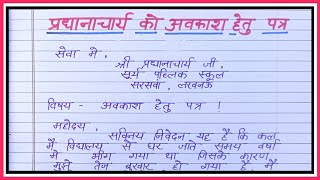 प्रधानाचार्य को अवकाश हेतु पत्र
सेवा में,
श्री प्रधानाचार्य जी,
सूर्य पब्लिक स्कूल
सरसवा, लखनऊ
विषय - अवकाश हेतु पत्र !
महोदय,
सविनय निवेदन यह है कि कल
मैं विद्यालय से घर जाते समय वर्षा
में भीग गया था जिसके कारण
मुझे तेज बुखार हो गया है, मैं